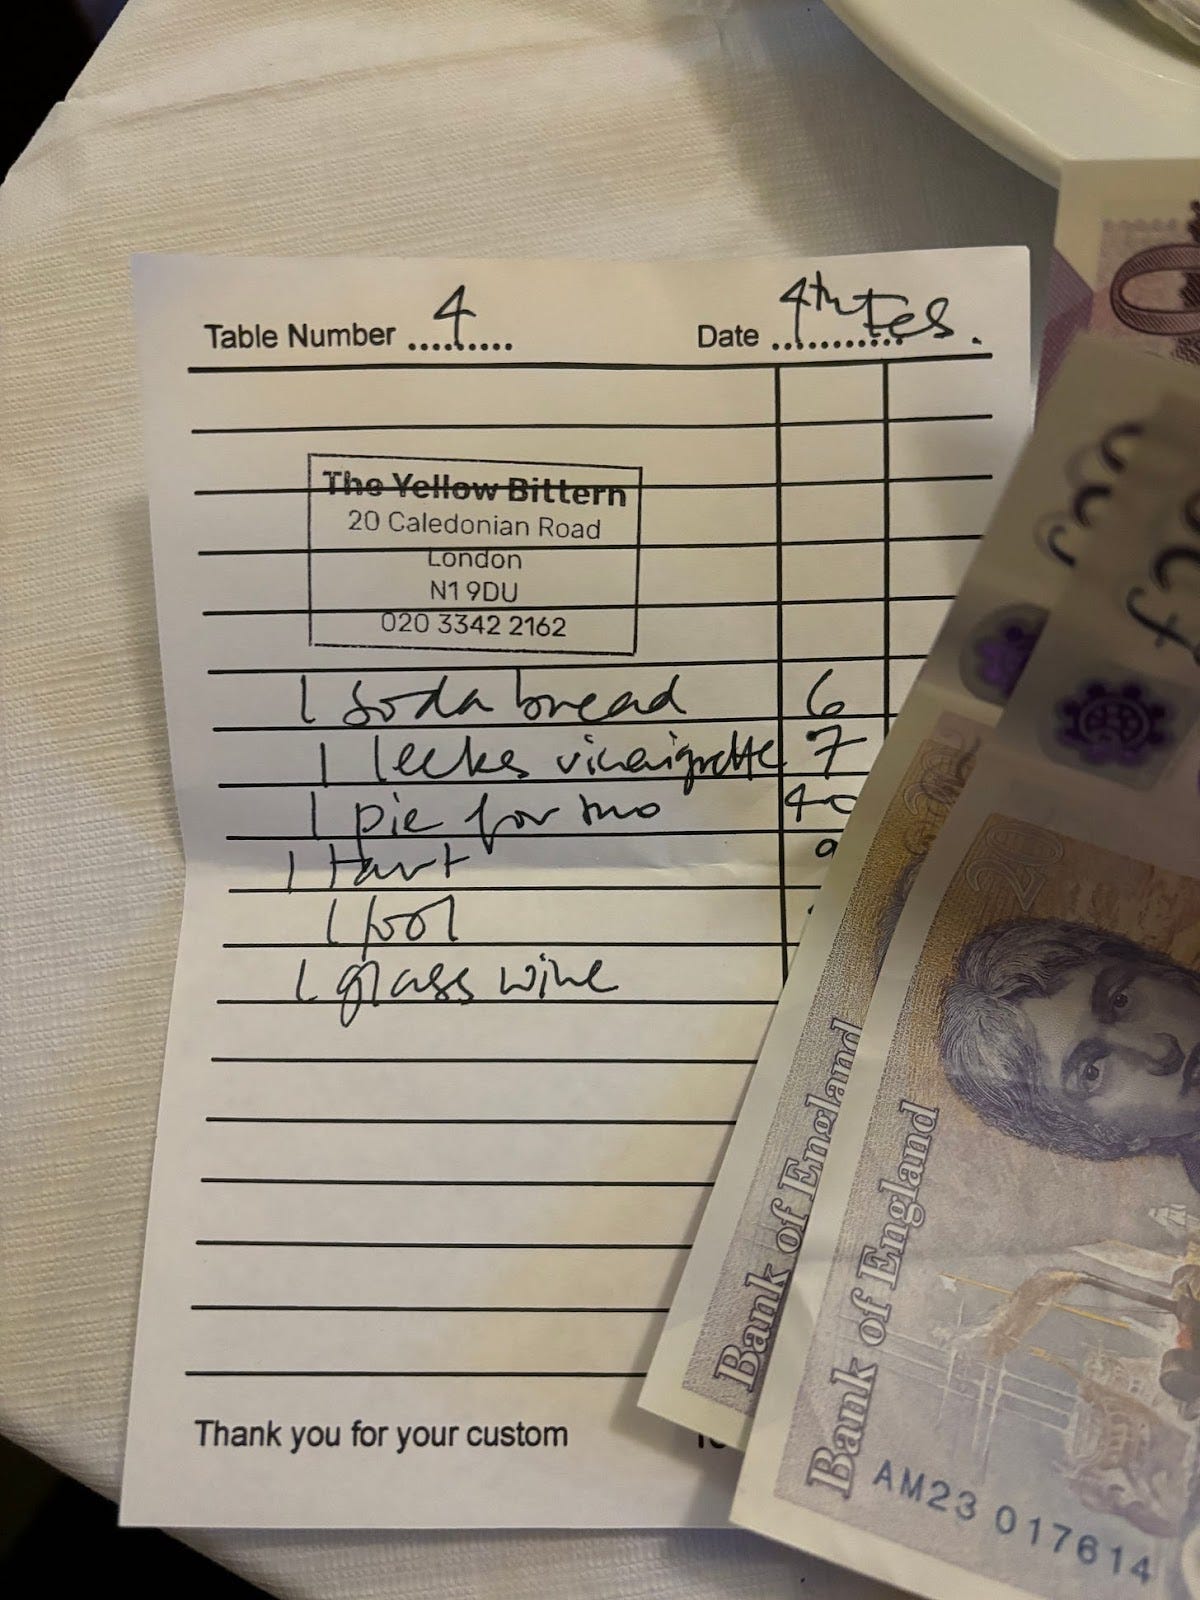 Table Number 4
Date 4th Feb.
The Yellow Bittern
20 Caledonian Road
London
N1 9DU
020 3342 2162
1 soda bread 6
1 leeks vinaigrette 7
1 pie for two 40
1 tart 9
1 fool
1 glass wine
Thank you for your custom
20
Bank of England
20
Bank of England
AM23 017614